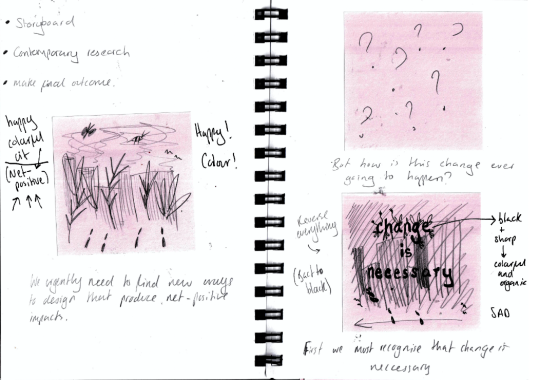 • Storyboard
• Contemporary research
• make final outcome.
happy
colourful
(Net-
positive)
Happy!
Colour!
We urgently need to find new ways
to design that produce net-positive
impacts.
? ? ? ? ? ? ?
'But how is this change ever
going to happen?
Reverse
everything
(Back to
black)
change
is
necessary
black
+
sharp
colourful
and
organic
SAD
First we must recognise that change is
necessary